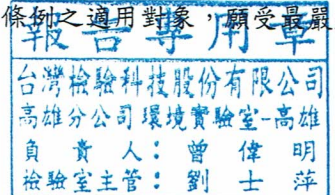 條例之適用對象，願受最嚴
報告專用章
台灣檢驗科技股份有限公司
高雄分公司環境實驗室-高雄
負責人：曾偉明
檢驗室主管：劉士萍